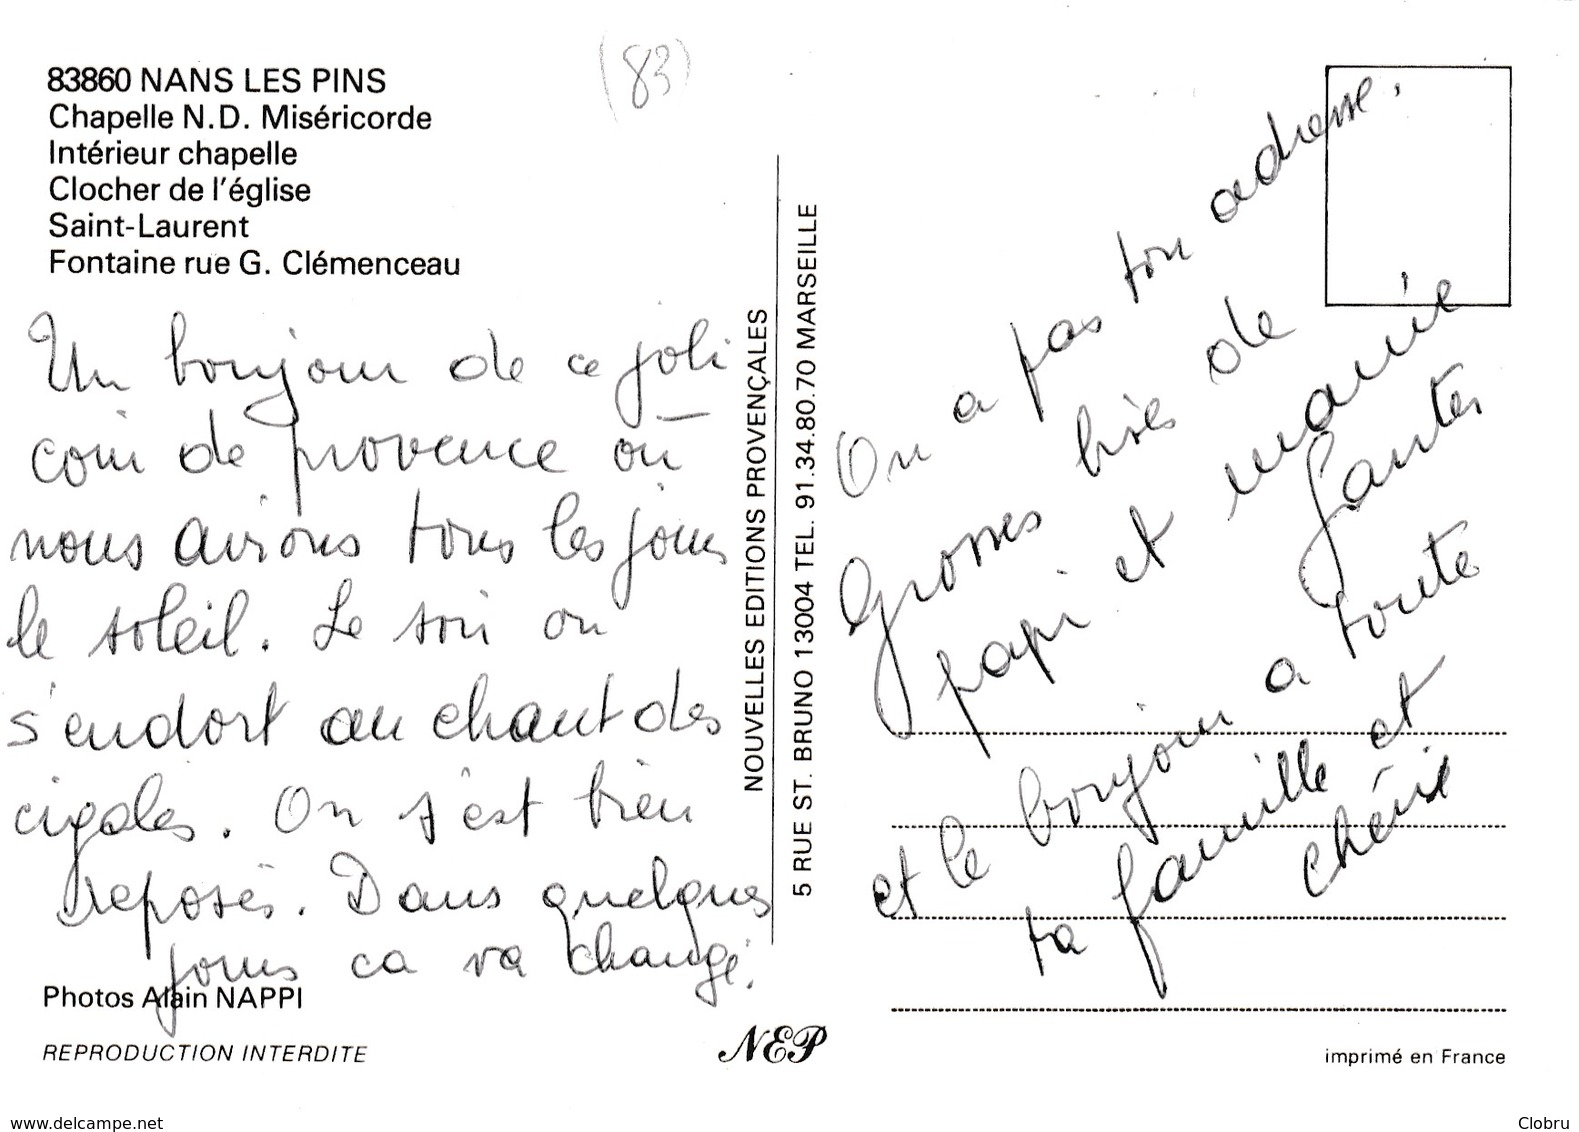 83860 NANS LES PINS
Chapelle N.D. Miséricorde
Intérieur chapelle
Clocher de l'église
Saint-Laurent
Fontaine rue G. Clémenceau
(83)
Un bonjour de ce joli
coin de provence où
nous avions tous les jours
le soleil. Le soir on
s'endort au chant des
cigales. On s'est bien
reposés. Dans quelques
jours ca va changé.
Photos Alain NAPPI
REPRODUCTION INTERDITE
NOUVELLES EDITIONS PROVENÇALES
5 RUE ST. BRUNO 13004 TEL. 91.34.80.70 MARSEILLE
NEP
On a pas ton adresse.
Grosses bises de
papi et mamie
Santes
et le bonjour a toute
ta famille et
chérie
imprimé en France
www.delcampe.net
Clobru